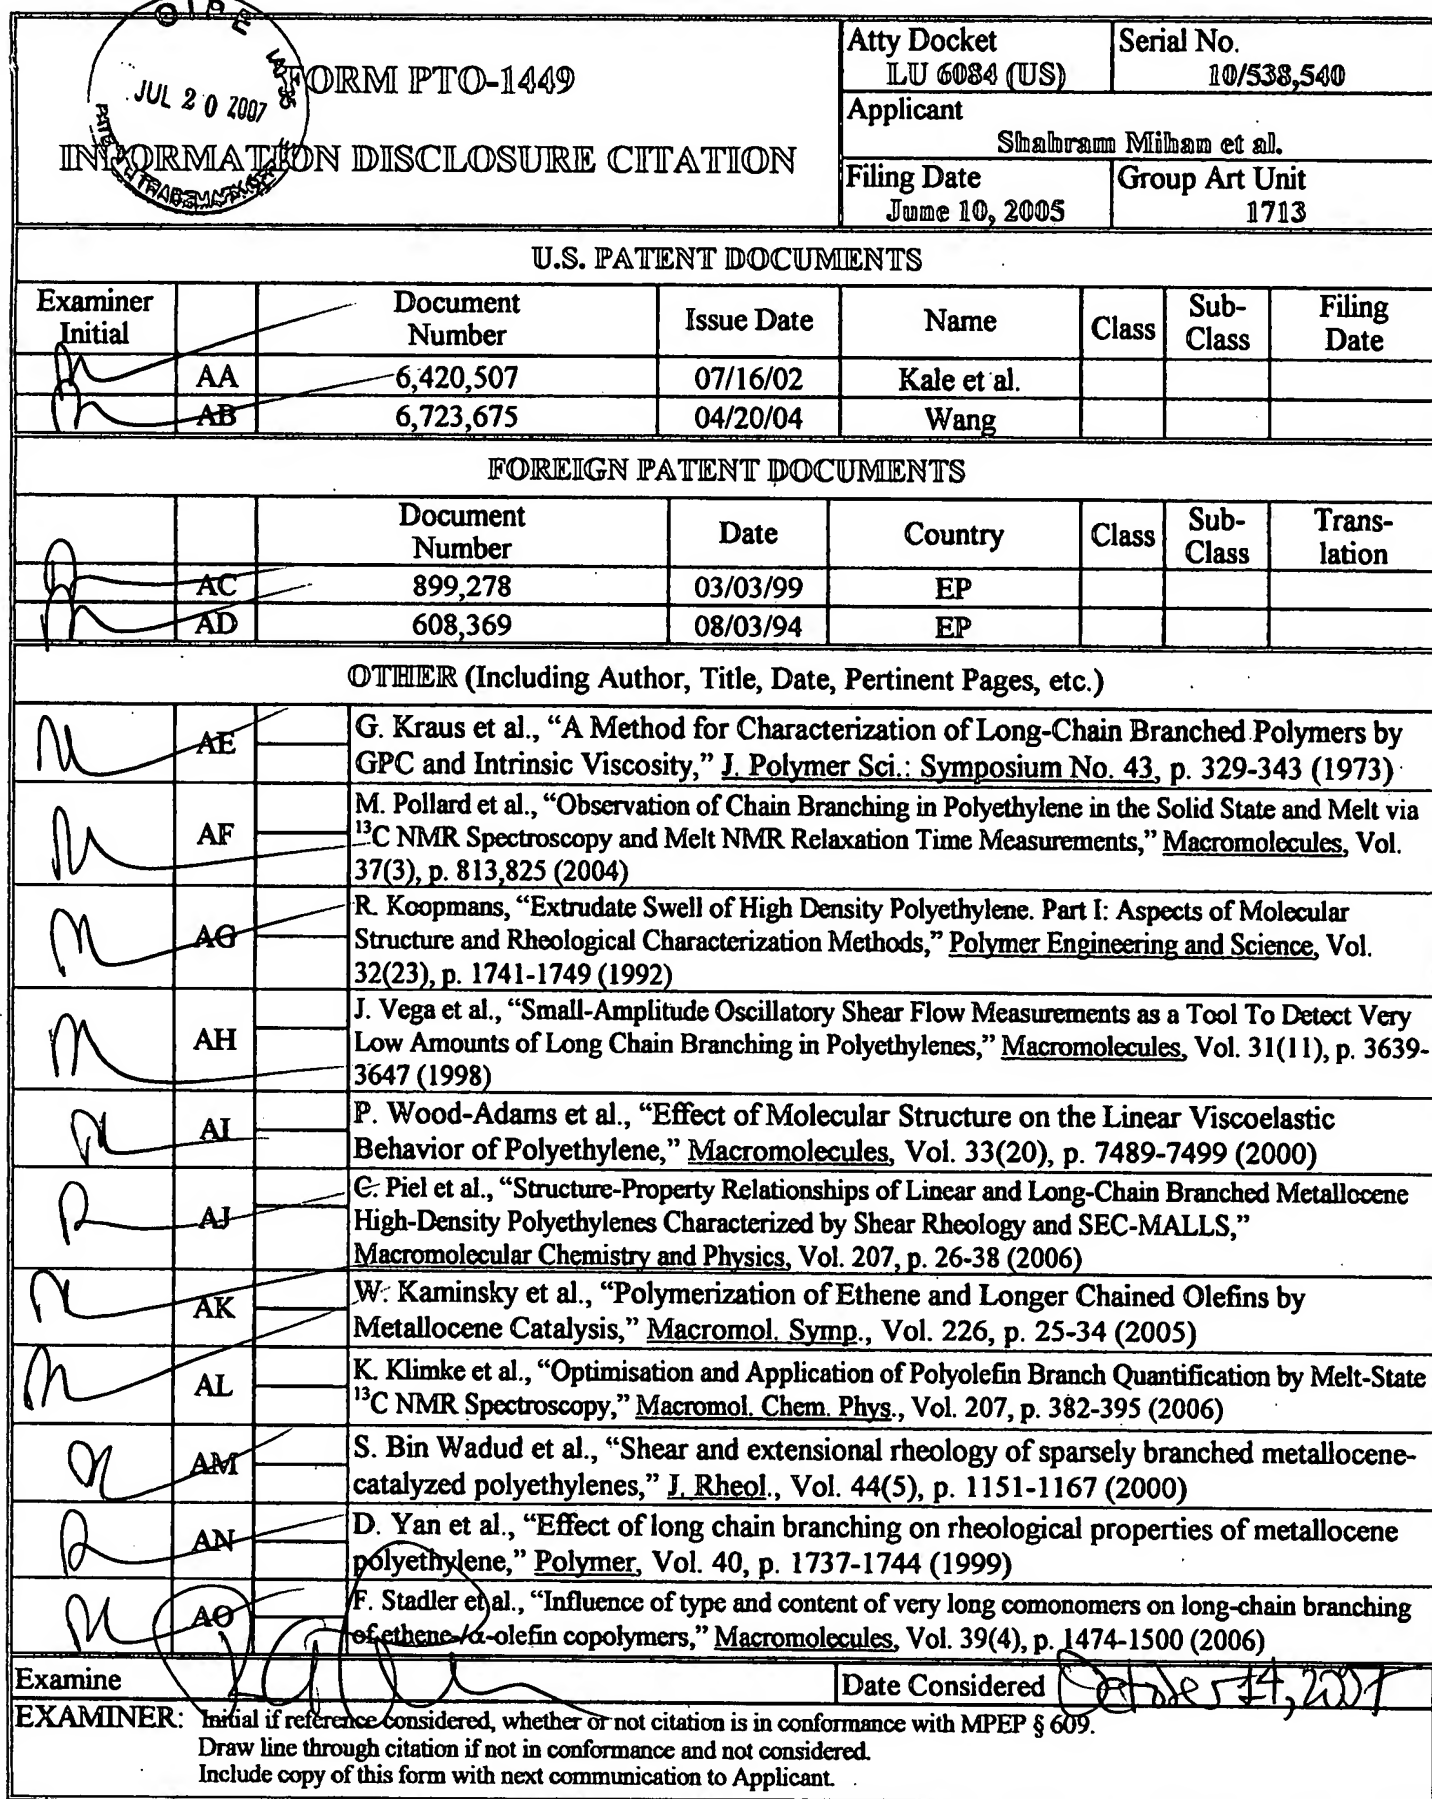 OIPE
IAP 35
JUL 20 2007
PATENT & TRADEMARK OFFICE
FORM PTO-1449
INFORMATION DISCLOSURE CITATION
Atty Docket
LU 6084 (US)
Serial No.
10/538,540
Applicant
Shahram Mihan et al.
Filing Date
June 10, 2005
Group Art Unit
1713
U.S. PATENT DOCUMENTS
Examiner Initial Document Number Issue Date Name Class Sub-Class Filing Date
AA 6,420,507 07/16/02 Kale et al.
AB 6,723,675 04/20/04 Wang
FOREIGN PATENT DOCUMENTS
Document Number Date Country Class Sub-Class Trans-lation
AC 899,278 03/03/99 EP
AD 608,369 08/03/94 EP
OTHER (Including Author, Title, Date, Pertinent Pages, etc.)
AE G. Kraus et al., “A Method for Characterization of Long-Chain Branched Polymers by
GPC and Intrinsic Viscosity,” J. Polymer Sci.: Symposium No. 43, p. 329-343 (1973)
AF M. Pollard et al., “Observation of Chain Branching in Polyethylene in the Solid State and Melt via
¹³C NMR Spectroscopy and Melt NMR Relaxation Time Measurements,” Macromolecules, Vol.
37(3), p. 813,825 (2004)
AG R. Koopmans, “Extrudate Swell of High Density Polyethylene. Part I: Aspects of Molecular
Structure and Rheological Characterization Methods,” Polymer Engineering and Science, Vol.
32(23), p. 1741-1749 (1992)
AH J. Vega et al., “Small-Amplitude Oscillatory Shear Flow Measurements as a Tool To Detect Very
Low Amounts of Long Chain Branching in Polyethylenes,” Macromolecules, Vol. 31(11), p. 3639-
3647 (1998)
AI P. Wood-Adams et al., “Effect of Molecular Structure on the Linear Viscoelastic
Behavior of Polyethylene,” Macromolecules, Vol. 33(20), p. 7489-7499 (2000)
AJ C. Piel et al., “Structure-Property Relationships of Linear and Long-Chain Branched Metallocene
High-Density Polyethylenes Characterized by Shear Rheology and SEC-MALLS,”
Macromolecular Chemistry and Physics, Vol. 207, p. 26-38 (2006)
AK W. Kaminsky et al., “Polymerization of Ethene and Longer Chained Olefins by
Metallocene Catalysis,” Macromol. Symp., Vol. 226, p. 25-34 (2005)
AL K. Klimke et al., “Optimisation and Application of Polyolefin Branch Quantification by Melt-State
¹³C NMR Spectroscopy,” Macromol. Chem. Phys., Vol. 207, p. 382-395 (2006)
AM S. Bin Wadud et al., “Shear and extensional rheology of sparsely branched metallocene-
catalyzed polyethylenes,” J. Rheol., Vol. 44(5), p. 1151-1167 (2000)
AN D. Yan et al., “Effect of long chain branching on rheological properties of metallocene
polyethylene,” Polymer, Vol. 40, p. 1737-1744 (1999)
AO F. Stadler et al., “Influence of type and content of very long comonomers on long-chain branching
of ethene-/α-olefin copolymers,” Macromolecules, Vol. 39(4), p. 1474-1500 (2006)
Examine
Date Considered October 14, 2007
EXAMINER: Initial if reference considered, whether or not citation is in conformance with MPEP § 609.
Draw line through citation if not in conformance and not considered.
Include copy of this form with next communication to Applicant.